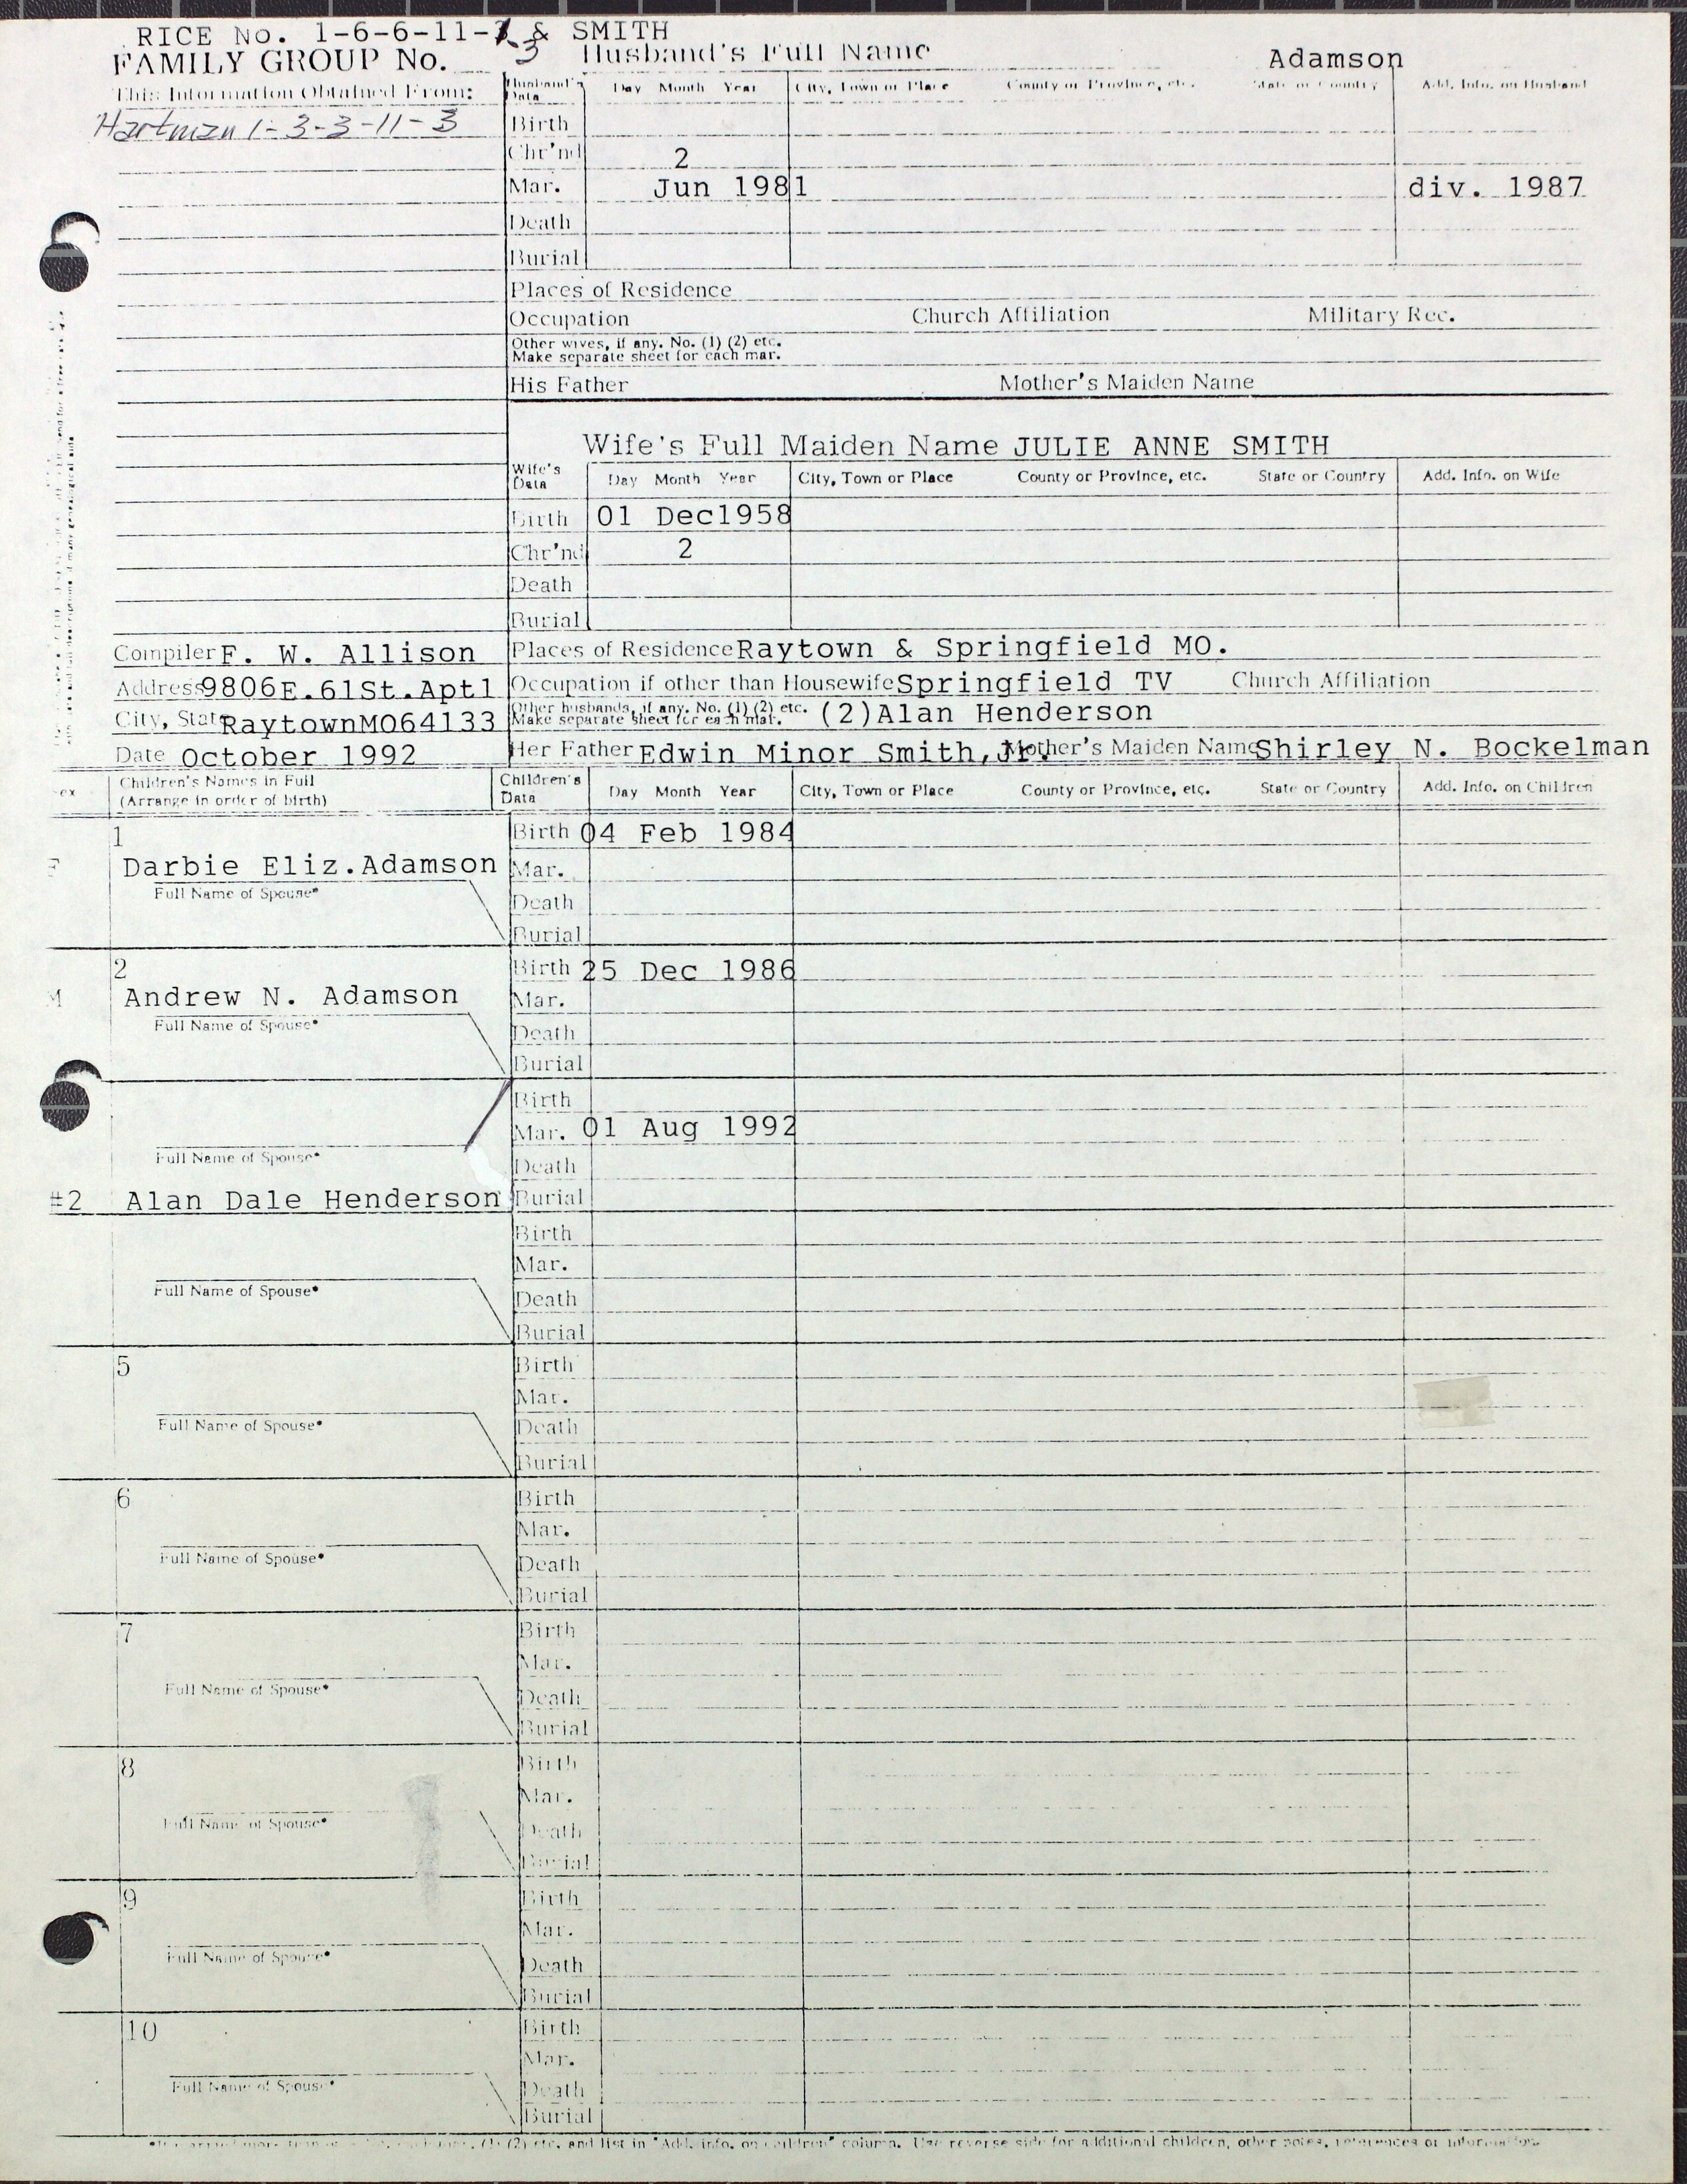 RICE No. 1-6-6-11- & SMITH
-3
FAMILY GROUP No.
Husband's Full Name Adamson
This Information Obtained From:
Hartman 1-3-3-11-3
Husband's Data Day Month Year City, Town or Place County or Province, etc. State or Country Add. Info. on Husband
Birth
Chr'nd 2
Mar. Jun 1981 div. 1987
Death
Burial
Places of Residence
Occupation Church Affiliation Military Rec.
Other wives, if any. No. (1) (2) etc.
Make separate sheet for each mar.
His Father Mother's Maiden Name
Wife's Full Maiden Name JULIE ANNE SMITH
Wife's Data Day Month Year City, Town or Place County or Province, etc. State or Country Add. Info. on Wife
Birth 01 Dec1958
Chr'nd 2
Death
Burial
Compiler F. W. Allison
Address 9806E.61St.Apt1
City, State RaytownMO64133
Date October 1992
Places of Residence Raytown & Springfield MO.
Occupation if other than Housewife Springfield TV Church Affiliation
Other husbands, if any. No. (1) (2) etc.
Make separate sheet for each mar. (2)Alan Henderson
Her Father Edwin Minor Smith,Jr. Mother's Maiden Name Shirley N. Bockelman
Sex Children's Names in Full
(Arrange in order of birth)
Children's Data Day Month Year City, Town or Place County or Province, etc. State or Country Add. Info. on Children
1
F Darbie Eliz.Adamson
Full Name of Spouse*
Birth 04 Feb 1984
Mar.
Death
Burial
2
M Andrew N. Adamson
Full Name of Spouse*
Birth 25 Dec 1986
Mar.
Death
Burial
Full Name of Spouse*
#2 Alan Dale Henderson
Birth
Mar. 01 Aug 1992
Death
Burial
Full Name of Spouse*
Birth
Mar.
Death
Burial
5
Full Name of Spouse*
Birth
Mar.
Death
Burial
6
Full Name of Spouse*
Birth
Mar.
Death
Burial
7
Full Name of Spouse*
Birth
Mar.
Death
Burial
8
Full Name of Spouse*
Birth
Mar.
Death
Burial
9
Full Name of Spouse*
Birth
Mar.
Death
Burial
10
Full Name of Spouse*
Birth
Mar.
Death
Burial
(1) (2) etc. and list in "Add. info. on children" column. Use reverse side for additional children, other notes, references or information.